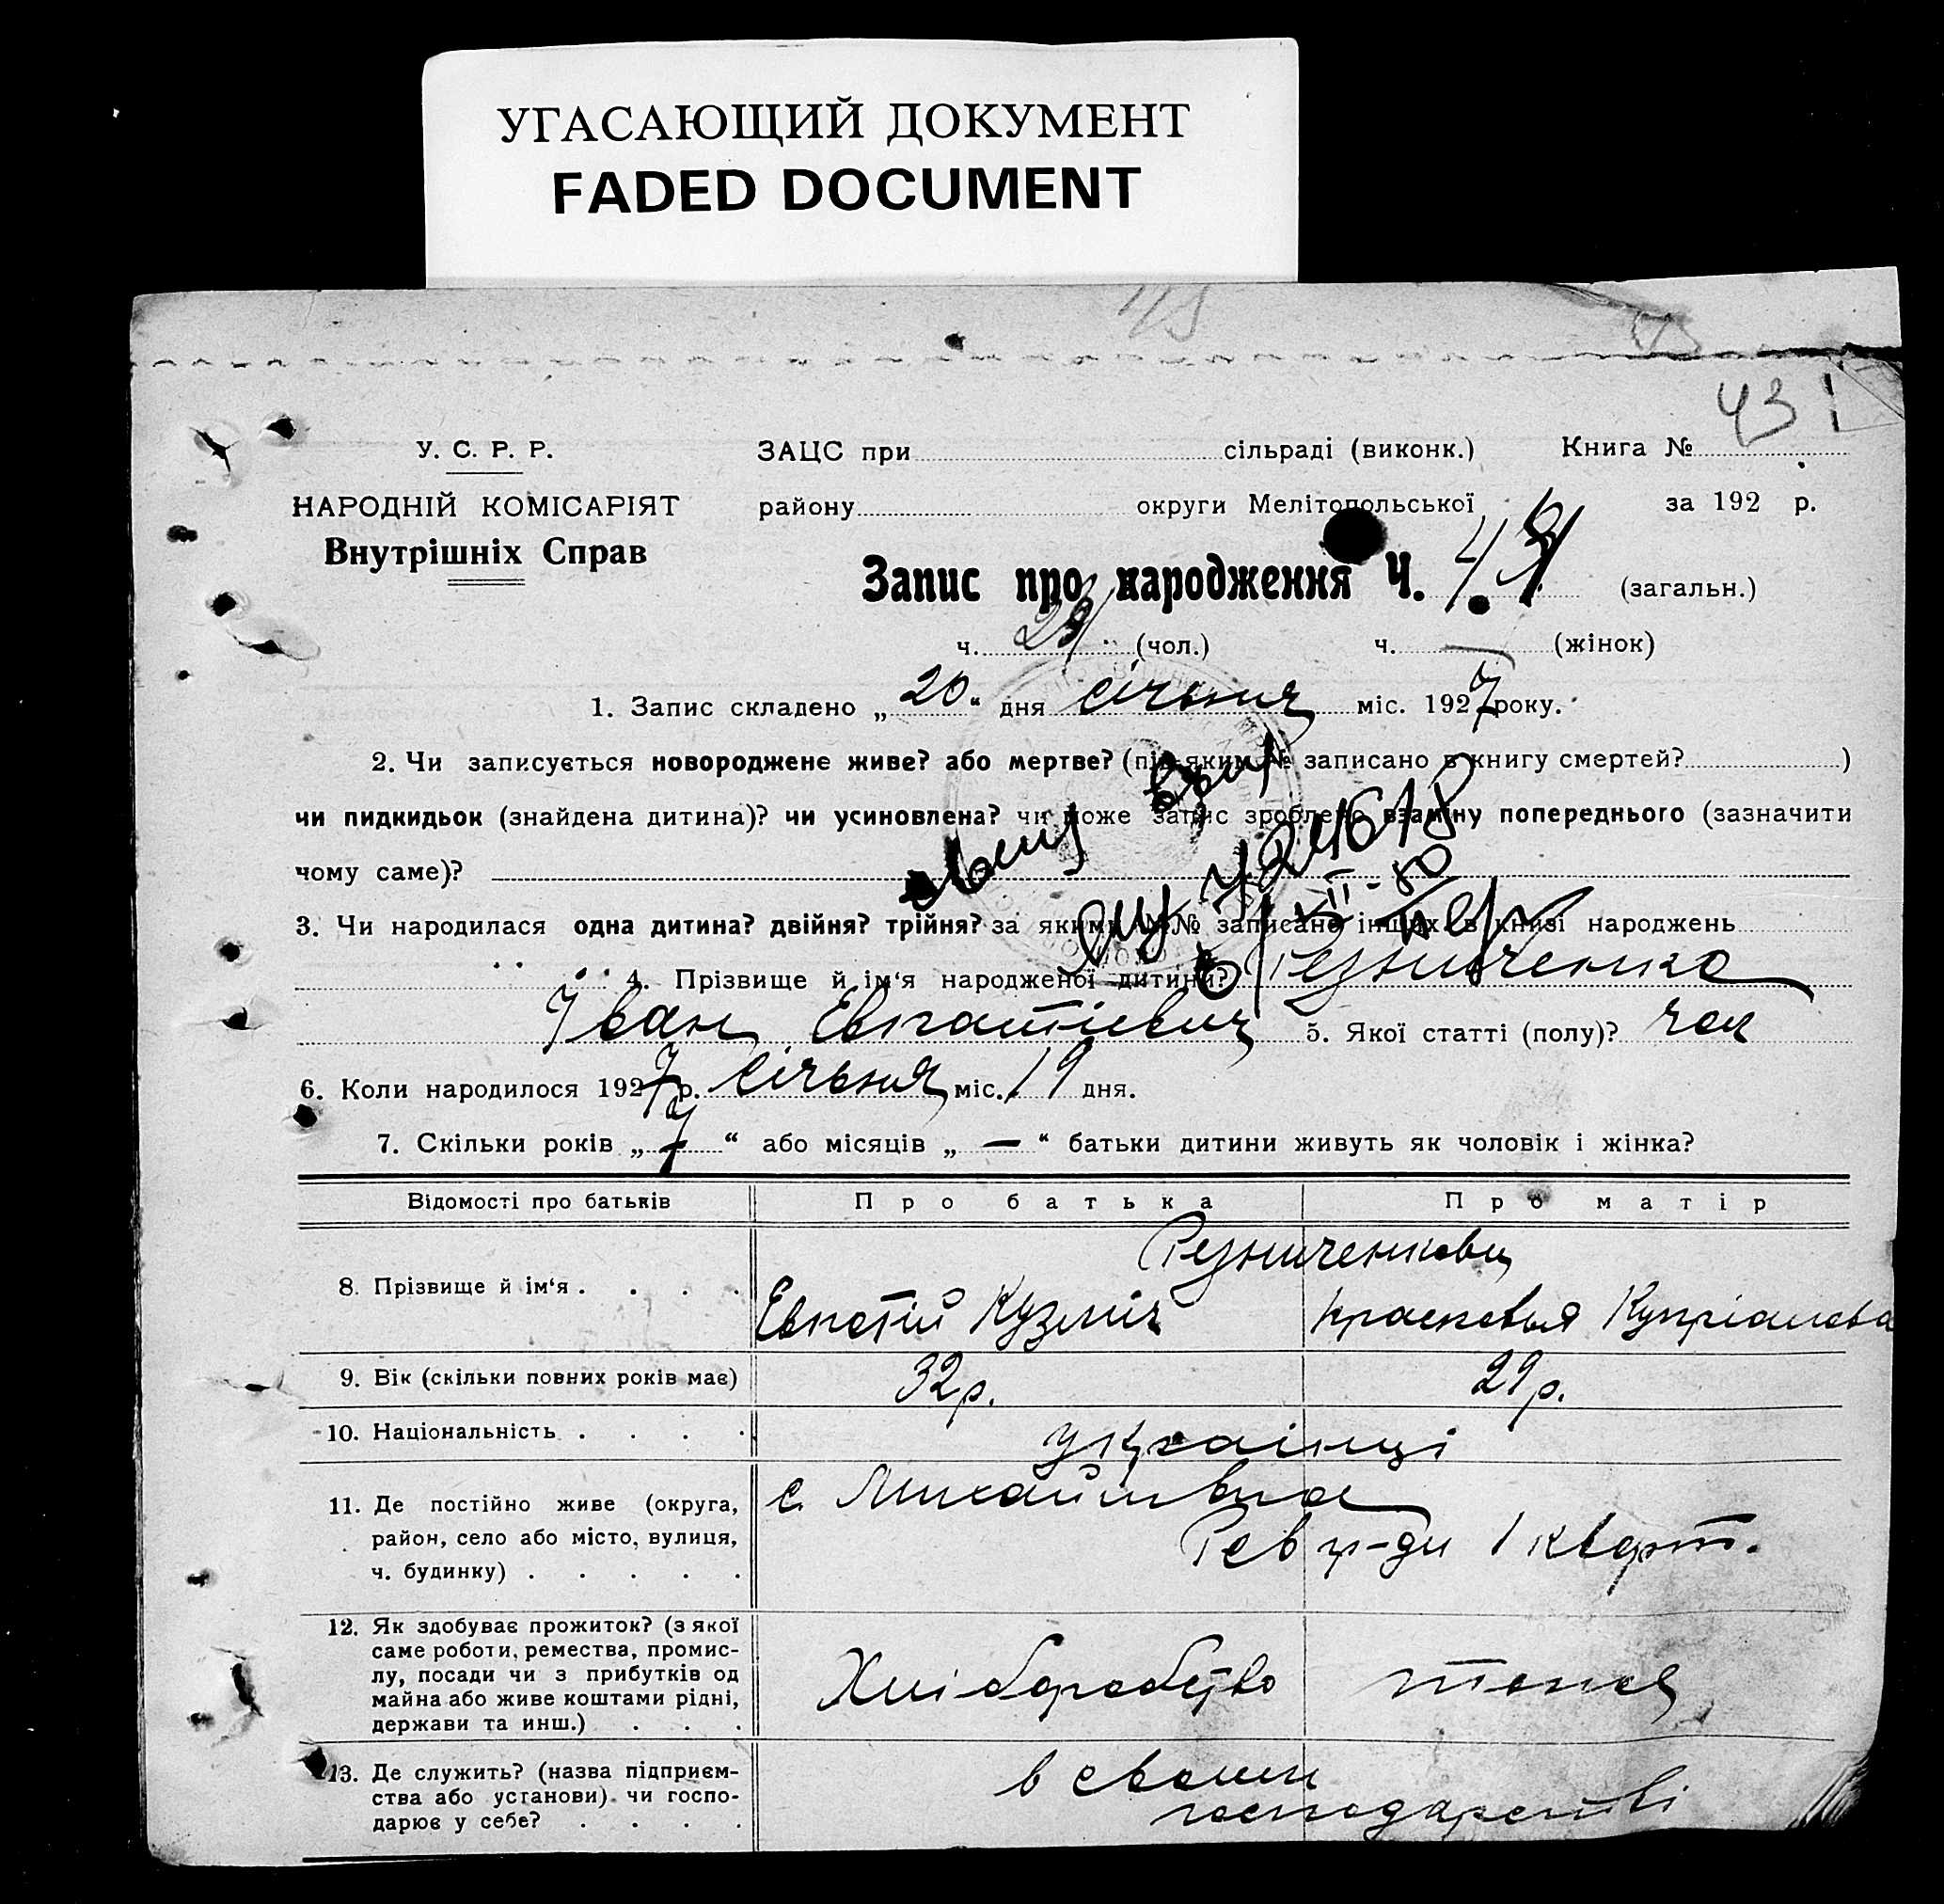 УГАСАЮЩИЙ ДОКУМЕНТ
FADED DOCUMENT
43
У. С. Р. Р.
ЗАЦС при сільраді (виконк.) Книга №
НАРОДНІЙ КОМІСАРІЯТ
району округи Мелітопольської за 192 р.
Внутрішніх Справ
Запис про народження Ч. (загальн.)
ч. 29 (чол.) ч. — (жінок)
1. Запис складено „20“ дня січьня міс. 1927 року.
2. Чи записується новороджене живе? або мертве? (під яким № записано в книгу смертей? )
чи пидкидьок (знайдена дитина)? чи усиновлена? чи може запис зроблено взаміну попереднього (зазначити
чому саме)?
3. Чи народилася одна дитина? двійня? трійня? за якими №№ записано інших в книзі народжень
4. Прізвище й ім‘я народженої дитини? Резниченко
Іван Евпатіевич 5. Якої статті (полу)? чол
6. Коли народилося 1927 р. січьня міс. 19 дня.
7. Скільки років „7“ або місяців „—“ батьки дитини живуть як чоловік і жінка?
Відомості про батьків Про батька Про матір
Резниченкови
8. Прізвище й ім‘я . . . . Евпатій Кузміч Красковья Купріанова
9. Вік (скільки повних років має) 32 р. 29 р.
10. Національність . . . . українці
11. Де постійно живе (округа, с. Михайлівка
район, село або місто, вулиця, Рев р-ди 1 кварт.
ч. будинку) . . . . .
12. Як здобуває прожиток? (з якої
саме роботи, ремества, промис-
лу, посади чи з прибутків од Хліборобство тоже
майна або живе коштами рідні,
держави та инш.) . . .
13. Де служить? (назва підприєм- в своїм
ства або установи) чи госпо- господарстві
дарює у себе? . . . .